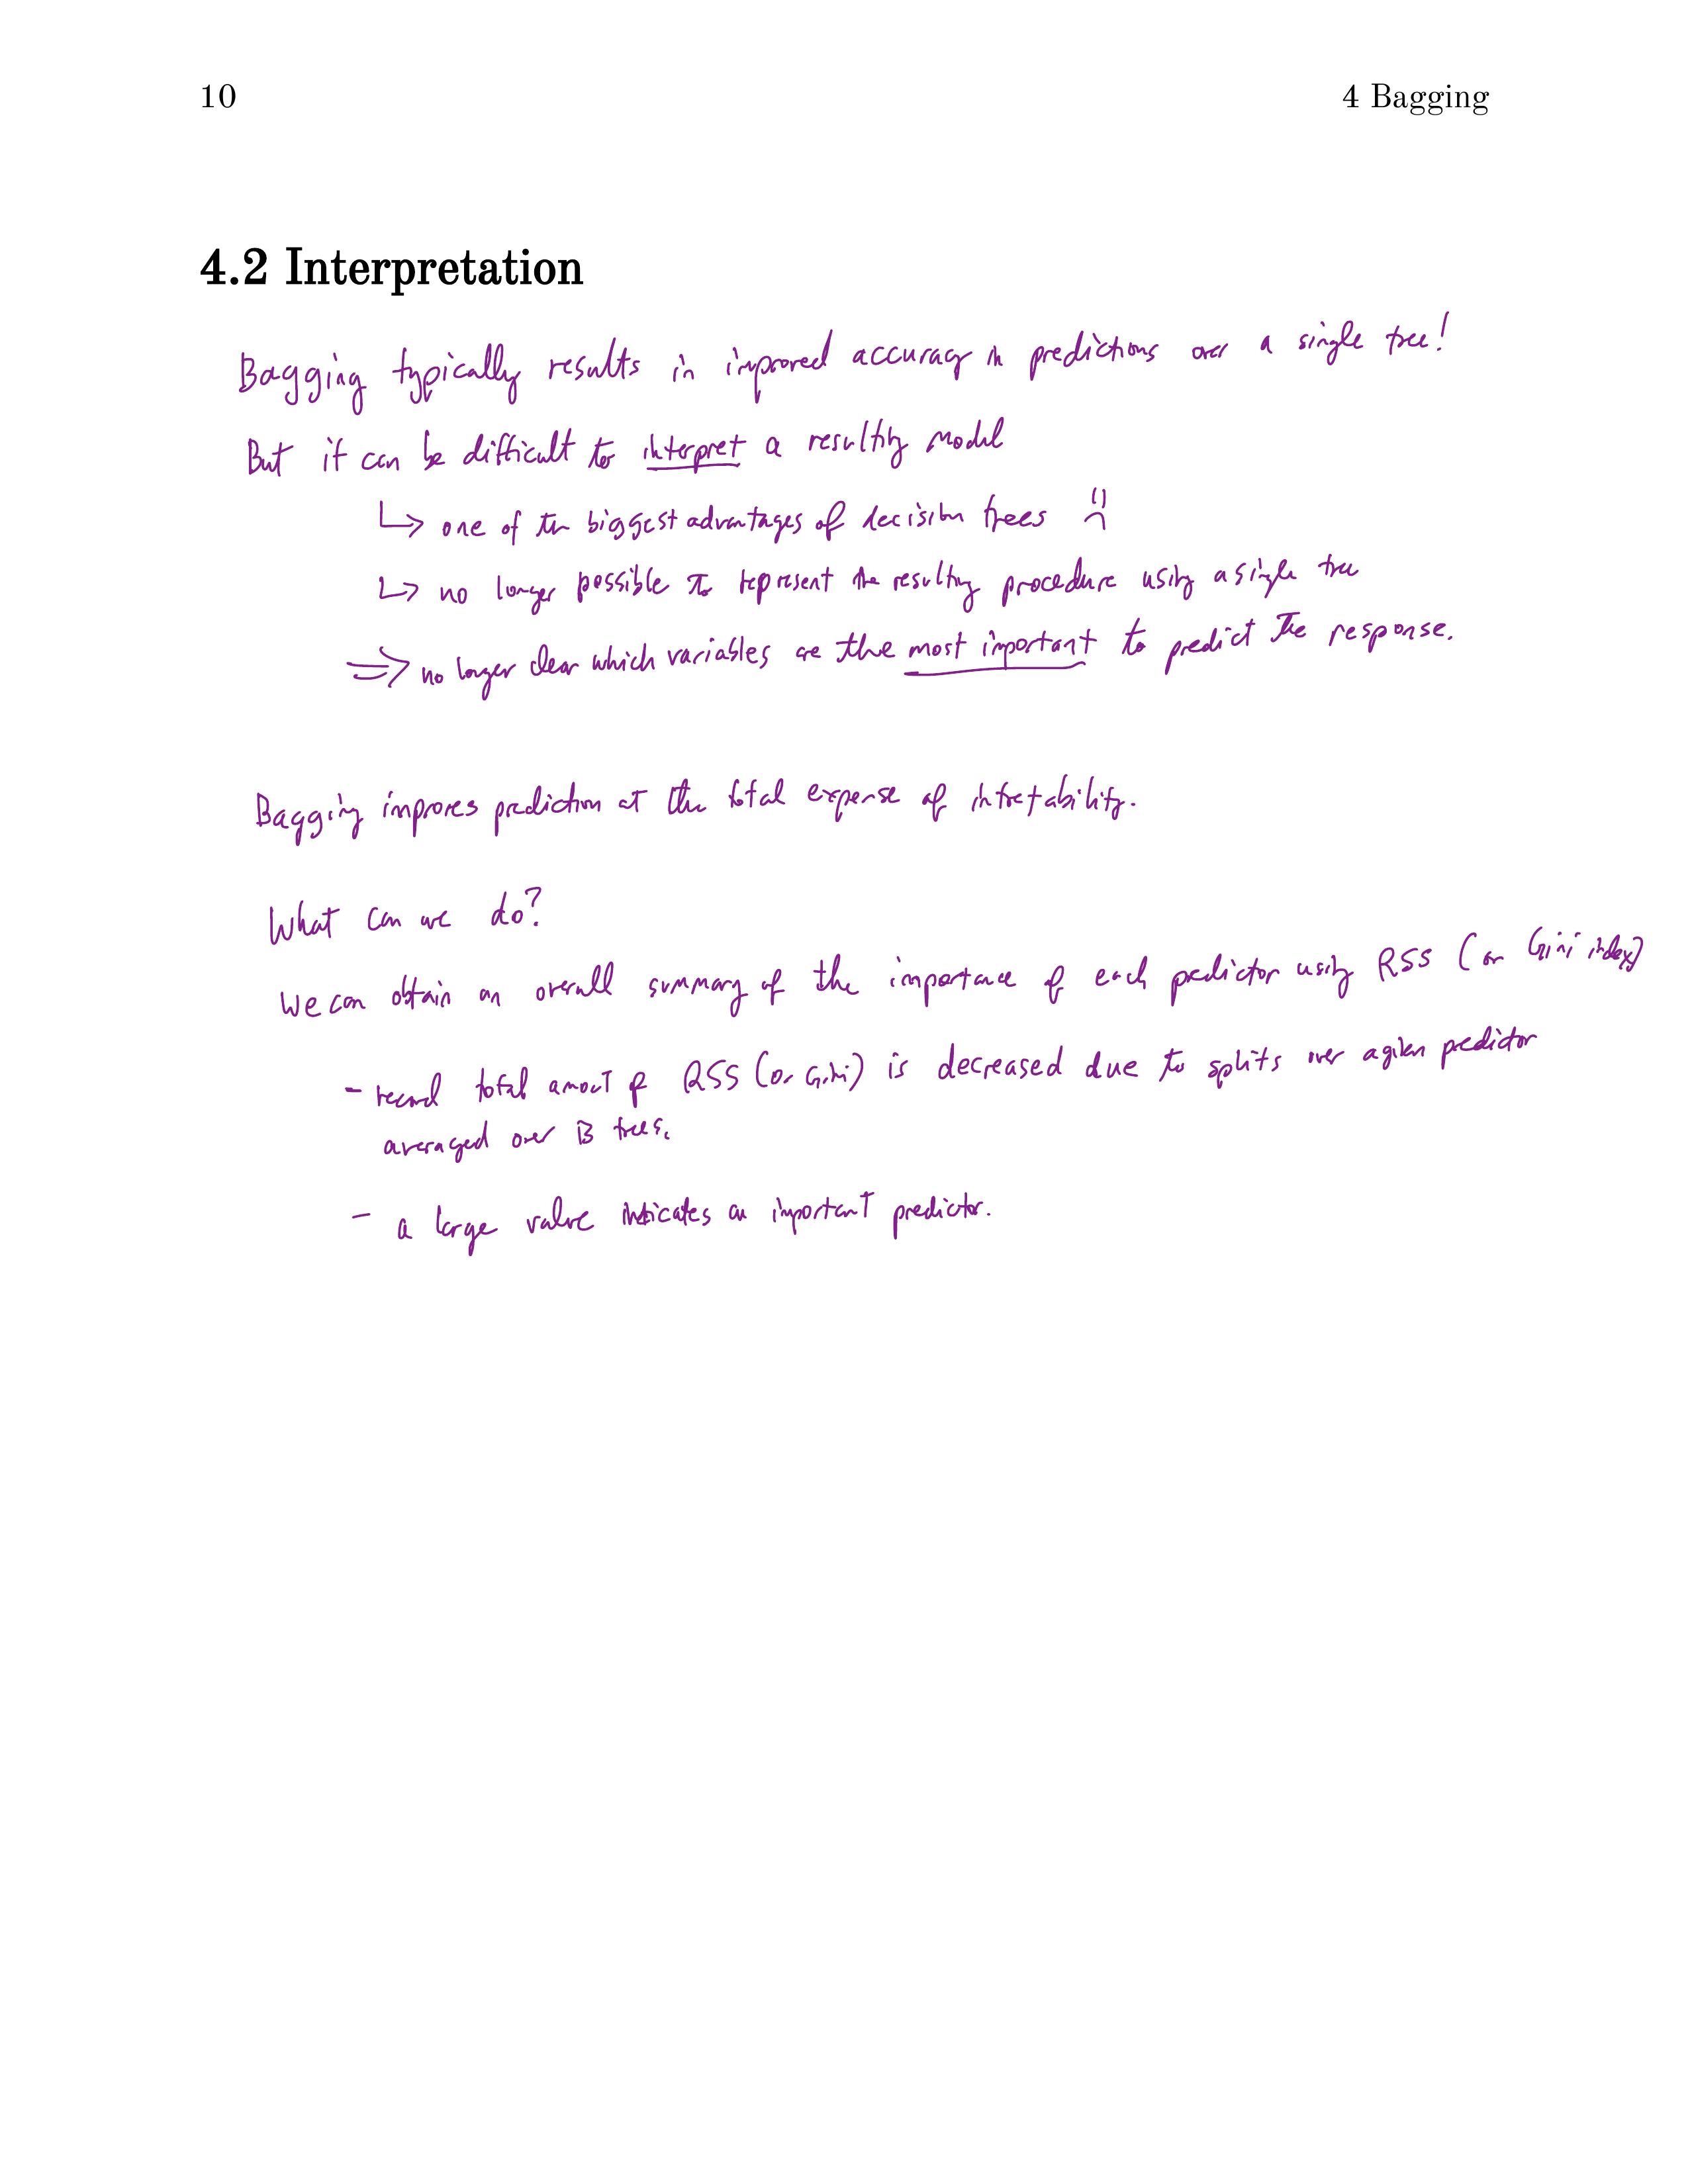 10 4 Bagging
4.2 Interpretation
Bagging typically results in improved accuracy in predictions over a single tree!
But it can be difficult to interpret a resulting model
↳ one of the biggest advantages of decision trees :(
↳ no longer possible to represent the resulting procedure using a single tree
⇒ no longer clear which variables are the most important to predict the response.
Bagging improves prediction at the total expense of intretability.
What can we do?
We can obtain an overall summary of the importance of each predictor using RSS (or Gini index)
- record total amout of RSS (or Gini) is decreased due to splits over a given predictor
averaged over B trees.
- a large value indicates an important predictor.